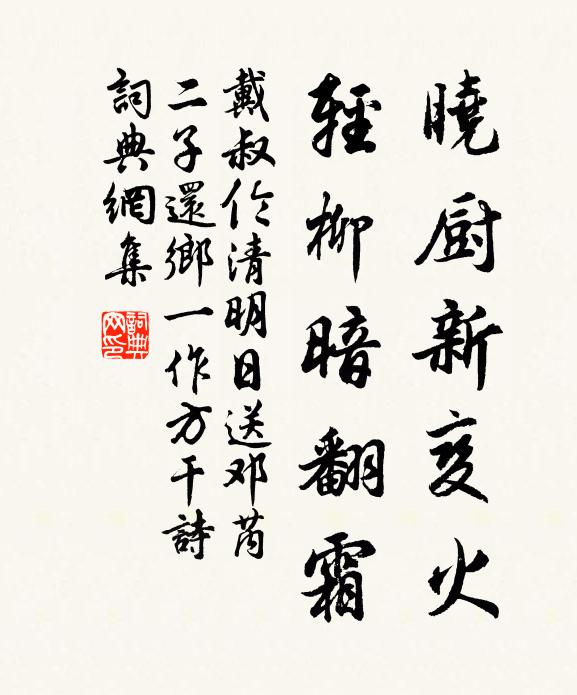 曉厨新变火
輕柳暗翻霜
戴叔伦清明日送邓芮
二子還鄉一作方干詩
詞典網集
詞典
网印